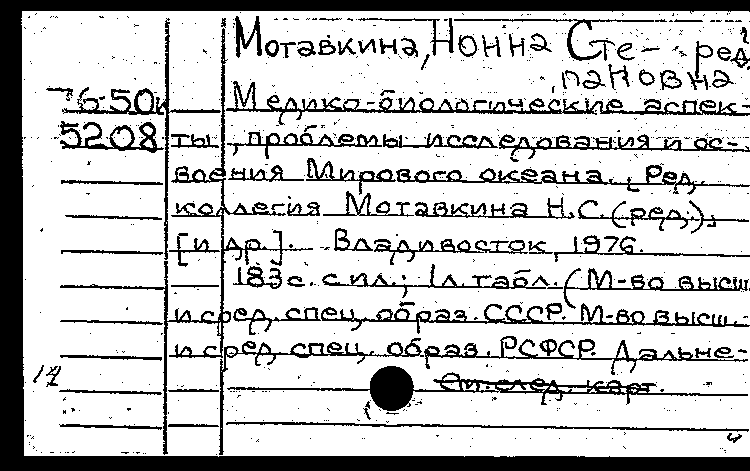 Мотавкина, Нонна Сте- ред.
пановна
76-50к Медико-биологические аспек-
5208 ты, проблемы исследования и ос-
воения Мирового океана. [Ред.
коллегия Мотавкина Н.С. (ред.),
[и др.]. Владивосток, 1976.
183 с. с ил.; 1л. табл. (М-во высш.
и сред. спец. образ. СССР. М-во высш.
и сред. спец. образ. РСФСР. Дальне-
14 См. след. карт.